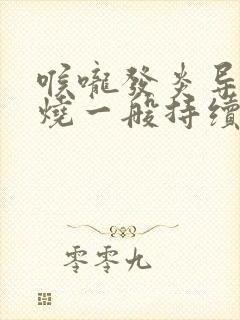 喉嚨發炎导
燒一般持續
零零九